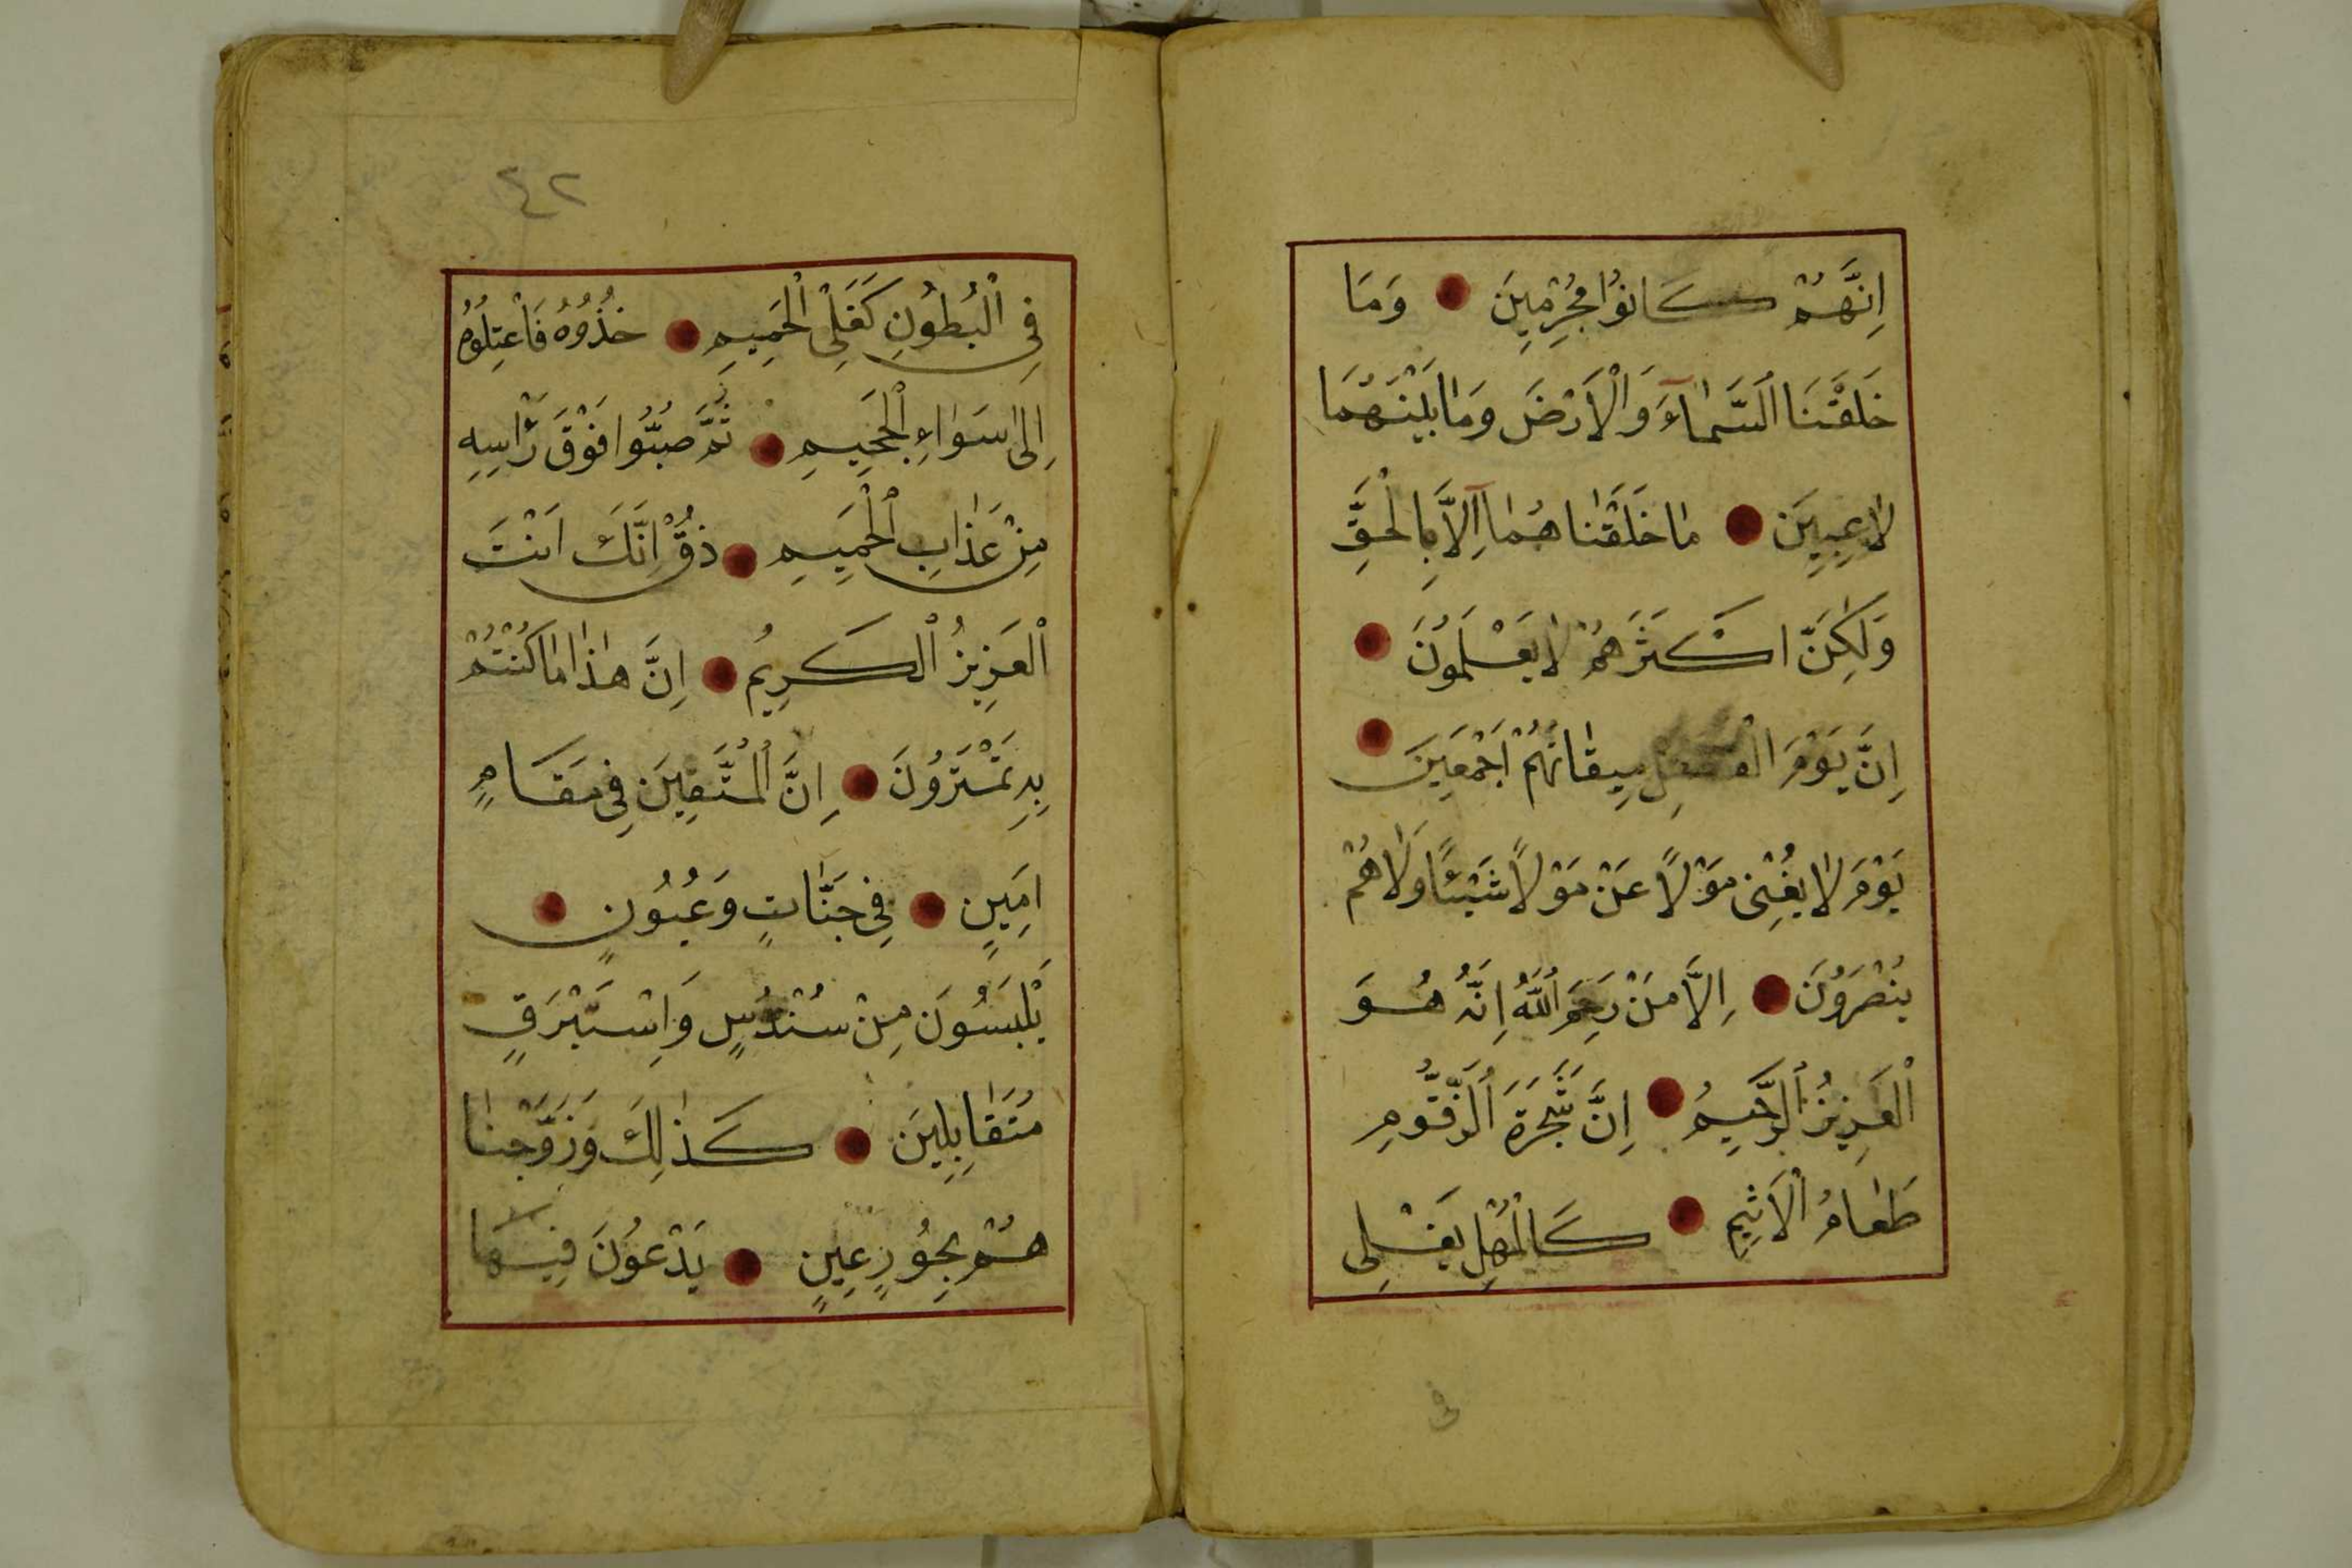 اِنَّهُمْ كَانُوا مُجْرِمِينَ وَمَا
خَلَقْنَا السَّمَاءَ وَالْاَرْضَ وَمَا بَيْنَهُمَا
لَاعِبِينَ مَا خَلَقْنَاهُمَا اِلَّا بِالْحَقِّ
وَلٰكِنَّ اَكْثَرَهُمْ لَا يَعْلَمُونَ
اِنَّ يَوْمَ الْفَصْلِ مِيقَاتُهُمْ اَجْمَعِينَ
يَوْمَ لَا يُغْنِى مَوْلًا عَنْ مَوْلًا شَيْئًا وَلَا هُمْ
يُنْصَرُونَ اِلَّا مَنْ رَحِمَ اللّٰهُ اِنَّهُ هُوَ
الْعَزِيزُ الرَّحِيمُ اِنَّ شَجَرَةَ الزَّقُّومِ
طَعَامُ الْاَثِيمِ كَالْمُهْلِ يَغْلِى
فى
٤٢
فِى الْبُطُونِ كَغَلْىِ الْحَمِيمِ خُذُوهُ فَاعْتِلُوهُ
اِلٰى سَوَاءِ الْجَحِيمِ ثُمَّ صُبُّوا فَوْقَ رَاْسِهِ
مِنْ عَذَابِ الْحَمِيمِ ذُقْ اِنَّكَ اَنْتَ
الْعَزِيزُ الْكَرِيمُ اِنَّ هٰذَا مَا كُنْتُمْ
بِهِ تَمْتَرُونَ اِنَّ الْمُتَّقِينَ فِى مَقَامٍ
اَمِينٍ فِى جَنَّاتٍ وَعُيُونٍ
يَلْبَسُونَ مِنْ سُنْدُسٍ وَاِسْتَبْرَقٍ
مُتَقَابِلِينَ كَذٰلِكَ وَزَوَّجْنَا
هُمْ بِحُورٍ عِينٍ يَدْعُونَ فِيهَا